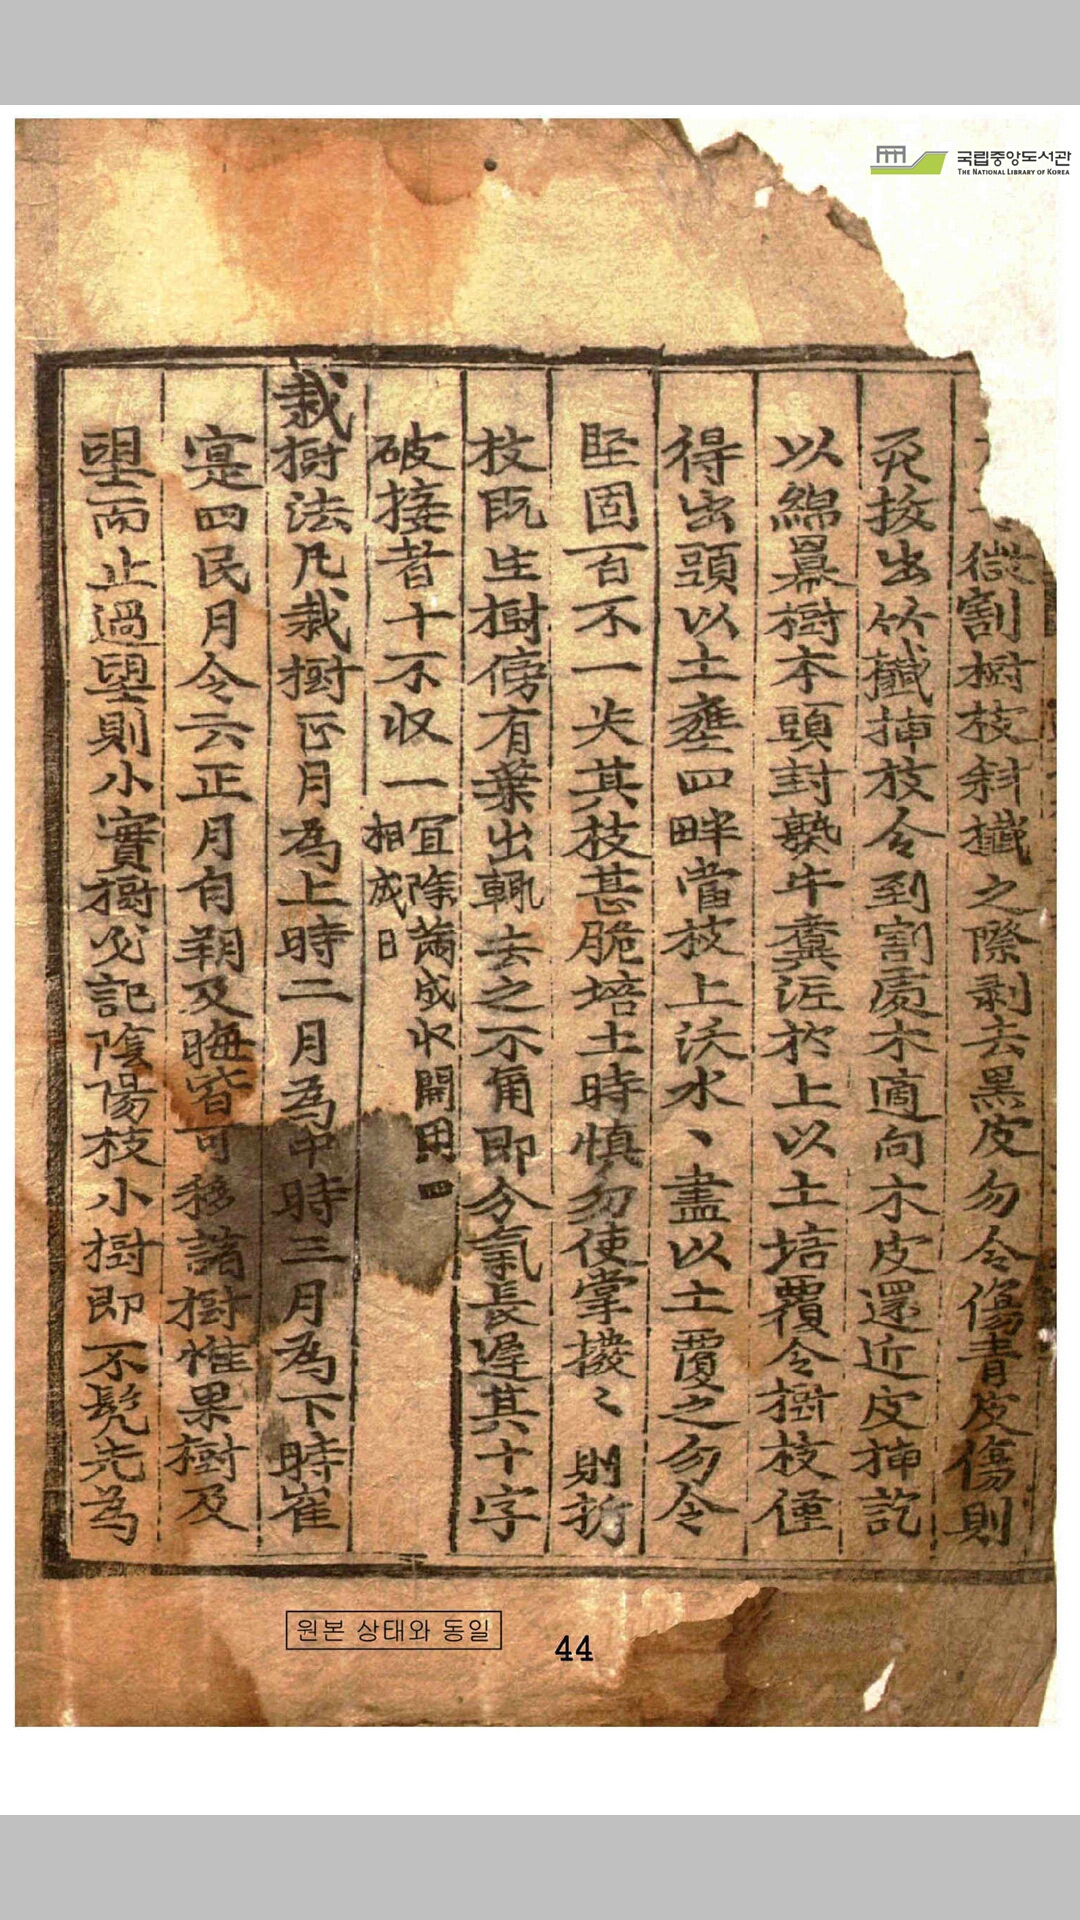 국립중앙도서관
THE NATIONAL LIBRARY OF KOREA
微割樹枝斜攕之際剥去黑皮勿令傷青皮傷則
死拔出竹攕揷枝令到割處木適向木皮還近皮揷訖
以綿羃樹本頭封熟牛糞泥於上以土培覆令樹枝僅
得出頭以土壅四畔當枝上沃水丶盡以土覆之勿令
堅固百不一失其枝甚脆培土時慎勿使掌撥〻則折
枝旣生樹傍有葉出輒去之不角即分氣長遲其十字
破接者十不収一
宜除滿成収開
相成日
栽樹法凡栽樹正月為上時二月為中時三月為下時崔
寔四民月令云正月自朔及晦皆可移諸樹惟果樹及
望而止過望則小實樹必記陰陽枝小樹即不髡先為
원본 상태와 동일
44